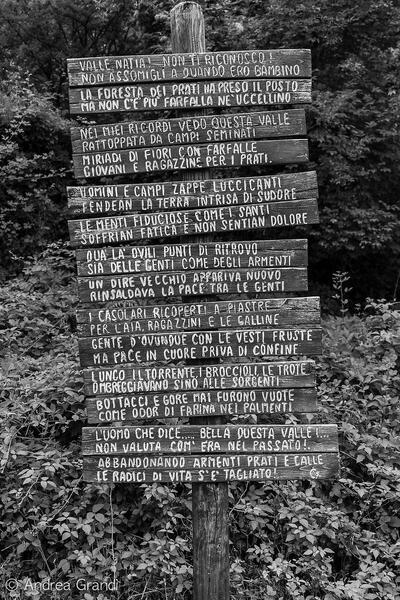 VALLE NATIA! NON TI RICONOSCO!
NON ASSOMIGLI A QUANDO ERO BAMBINO
LA FORESTA DEI PRATI HA PRESO IL POSTO
MA NON C'E' PIU' FARFALLA NE' UCCELLINO.
NEI MIEI RICORDI VEDO QUESTA VALLE
RATTOPPATA DA CAMPI SEMINATI
MIRIADI DI FIORI CON FARFALLE
GIOVANI E RAGAZZINE PER I PRATI.
UOMINI E CAMPI ZAPPE LUCCICANTI
FENDEAN LA TERRA INTRISA DI SUDORE
LE MENTI FIDUCIOSE COME I SANTI
SOFFRIAN FATICA E NON SENTIAN DOLORE
QUA LA' OVILI PUNTI DI RITROVO
SIA DELLE GENTI COME DEGLI ARMENTI
UN DIRE VECCHIO APPARIVA NUOVO
RINSALDAVA LA PACE TRA LE GENTI
I CASOLARI RICOPERTI A PIASTRE
PER L'AIA, RAGAZZINI E LE GALLINE
GENTE D'OVUNQUE CON LE VESTI FRUSTE
MA PACE IN CUORE PRIVA DI CONFINE
LUNGO IL TORRENTE, I BROCCIOLI, LE TROTE
OMBREGGIAVANO SINO ALLE SORGENTI
BOTTACCI E GORE MAI FURONO VUOTE
COME ODOR DI FARINA NEI PALMENTI
L'UOMO CHE DICE..... BELLA QUESTA VALLE!...
NON VALUTA COM' ERA NEL PASSATO!
ABBANDONANDO ARMENTI PRATI E CALLE
LE RADICI DI VITA S'E' TAGLIATO!
© Andrea Grandi